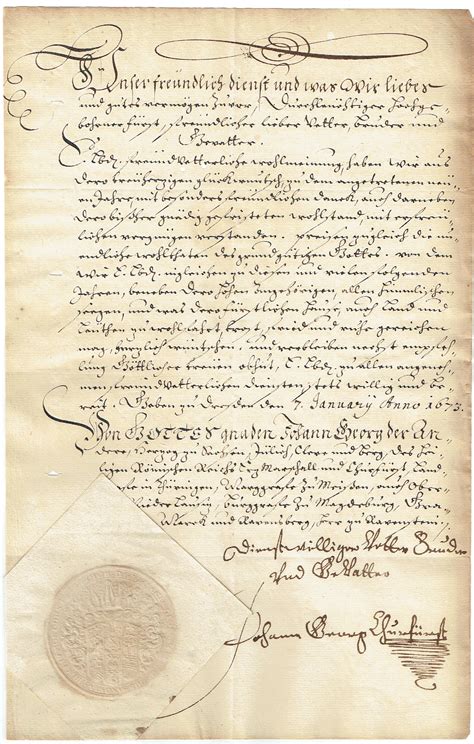 Unser freündlich dienst und was Wir liebes
und gutes vermögen zuvor, Durchleüchtiger Hochge-
bohrner fürst, freündlicher lieber Vetter, bruder und
Gevatter.
E. Lbd. freünd Vetterliche wohlmeinung, haben wir aus
dero treüherzigen glückwunsch, zu dem angetretenen neüen
Jahre, mit besonders freündlichen danck, auch darneben
dero bißher gnädig gefristeten wohlstand, mit erfreü-
lichen vernügen verstanden. preisen zugleich die un-
endliche wohlthaten des grundgütigen Gottes. von dem
wir E. Lbd. ingleichen zu diesen und vielen folgenden
Jahren, beneben dero hohen Angehörigen, allen himmlischen
seegen, und was dero fürstlichen Hause, auch Land und
Leüthen zu wohlfahrt, trost, fried und ruhe gereichen
mag, herzlich wünschen. und verbleiben nechst empfeh-
lung Göttlicher treuen obhut, E. Lbd. zu allen angeneh-
men, freünd Vetterlichen diensten, stets willig und be-
reit. Geben zu Dresden den 7. January Anno 1673.
Von GOTTES gnaden, Johann Georg der An-
dere, Herzog zu Sachsen, Jülich, Cleve und berg, des Hei-
ligen Römischen Reichs Erz Marschall und Churfürst, Land-
graff in Thüringen, Marggraff zu Meißen, auch Ober
und Nieder Lausitz, burggraff zu Magdeburg, Gra
Marck und Ravensberg, herr zu Ravenstein,
Dienstwilliger Vetter Bruder
Und GeVatter
Johann Georg Churfürst